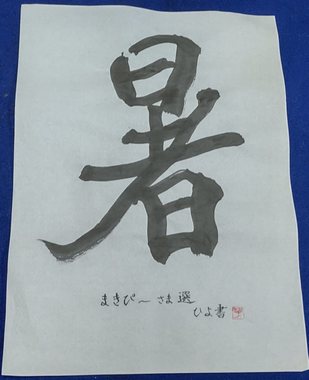 暑
まきぴ～さま選
ひよ書